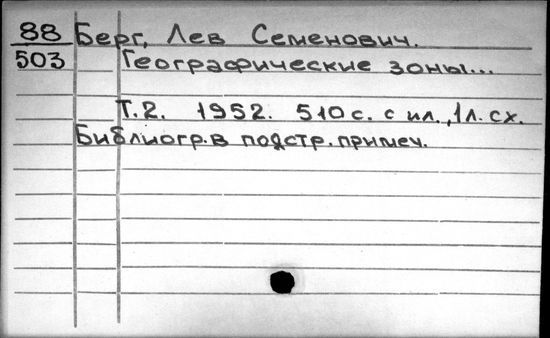 88 Берг, Лев Семенович.
503 Географические зоны...
Т.2. 1952. 510 с. с ил., 1 л. сх.
Библиогр. в подстр. примеч.